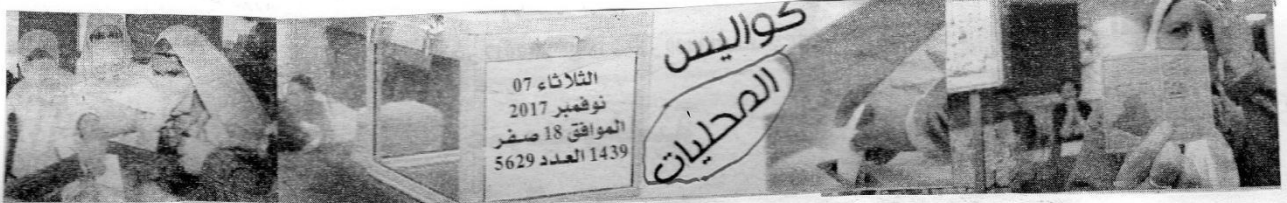 كواليس
المحليات
الثلاثاء 07
نوفمبر 2017
الموافق 18 صفر
1439 العدد 5629